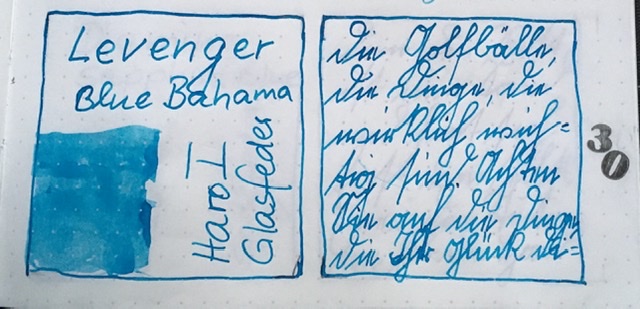 Levenger
Blue Bahama
Haro I
Glasfeder
die Golfbälle,
die Dinge, die
wirklich wich=
tig sind. Achten
Sie auf die Dinge,
die Ihr Glück
30